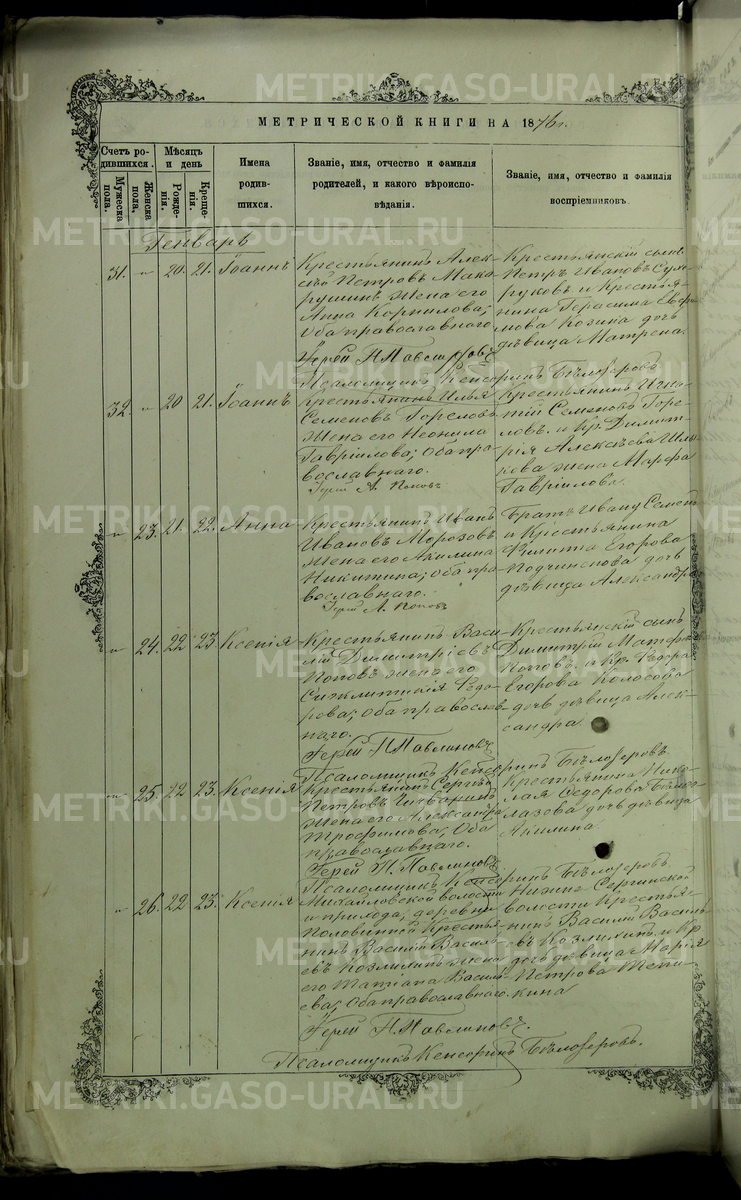 МЕТРИЧЕСКОЙ КНИГИ НА 1876 г.
Счетъ родившихся.
Мужеска пола.
Женска пола.
Мѣсяцъ и день
Рожденія.
Крещенія.
Имена родившихся.
Званіе, имя, отчество и фамилія родителей, и какого вѣроисповѣданія.
Званіе, имя, отчество и фамилія воспріемниковъ.
Генварь
31. " 20. 21. Іоаннъ
Крестьянинъ Алек-
сѣй Петровъ Мака-
рушинъ жена его
Анна Корнилова;
Оба православнаго
Крестьянскій сынъ
Петръ Ивановъ
и Крестья-
нина Герасима
Козина дочь
дѣвица Матрена.
Іерей П. Павлиновъ
Псаломщикъ Кенсоринъ Бѣлозеровъ
32. " 20 21. Іоаннъ
Крестьянинъ Илья
Семеновъ Гореловъ
жена его Неонила
Гавріилова; Оба пра-
вославнаго.
Іерей А. Поповъ
Крестьянинъ Игна-
тій Семеновъ Горе-
ловъ и Кр. Димит-
рія Алексѣева
жена Марфа
Гавріилова.
" 23. 21. 22. Анна
Крестьянинъ Иванъ
Ивановъ Морозовъ
жена его Акилина
Никитина; Оба пра-
вославнаго.
Іерей А. Поповъ
Братъ Ивану Семенъ
и Крестьянина
Филиппа Егорова
дочь
дѣвица Александра
" 24. 22 23 Ксенія
Крестьянинъ Васи-
лій Димитріевъ
Поповъ жена его
Синклитикія Ѳедо-
рова; Оба православ-
наго.
Крестьянскій сынъ
Димитрій
Поповъ. и Кр. Ѳедора
Егорова Колосова
дочь дѣвица Алек-
сандра.
Іерей П. Павлиновъ
Псаломщикъ Кенсоринъ Бѣлозеровъ
" 25. 22 23. Ксенія
Крестьянинъ Сергѣй
Петровъ
жена его Александра
Трофимова; Оба
православнаго.
Крестьянина Нико-
лая Ѳедорова
дочь дѣвица
Акилина
Іерей П. Павлиновъ
Псаломщикъ Кенсоринъ Бѣлозеровъ
" 26. 22 23. Ксенія
Михайловской волости
и прихода, деревни
Половинной Крестья-
нинъ Василій Василь-
евъ Козлихинъ жена
его Татіана Василь-
ева; Оба православнаго.
Нижне Сергинской
волости Крестья-
нинъ Василій Василь-
евъ Козлихинъ и Кр
дочь дѣвица Марія
Петрова
Іерей П. Павлиновъ.
Псаломщикъ Кенсоринъ Бѣлозеровъ.
METRIKI.GASO-URAL.RU